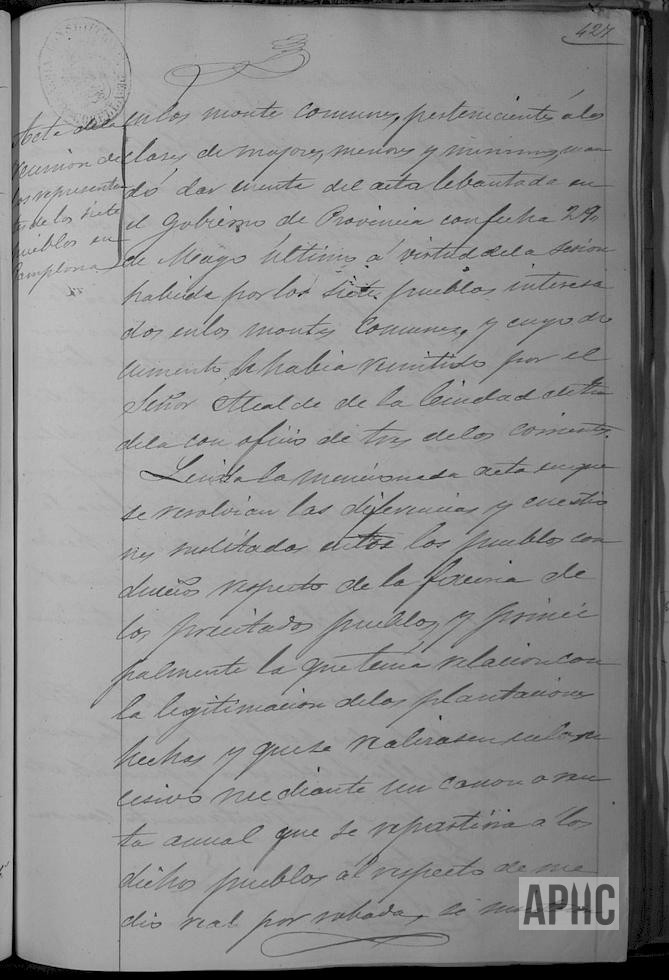 427
Acta de la
reunion de
los representan
tes de los siete
pueblos en
Pamplona
en los monte comunes, pertenecientes á las
clases de mayores, menores y minimos, man
dó dar cuenta del acta levantada en
el Gobierno de Provincia con fecha 29,
de Mayo último á virtud de la sesion
habida por los siete pueblos interesa
dos en los montes comunes, y cuyo do
cumento se habia remitido por el
Señor Alcalde de la Ciudad de Tu
dela con oficio de tres de los corrientes.
Leida la mencionada acta en que
se resolvian las diferencias y cuestio
nes suscitadas entre los pueblos con
dueños respecto de la facería de
los precitados pueblos, y princi
palmente la que tenia relacion con
la legitimacion de las plantaciones
hechas y que se realizasen en lo su
cesivo mediante un canon o ren
ta anual que se repartiria a los
dichos pueblos al respecto de me
dio real por robada, se
APHC